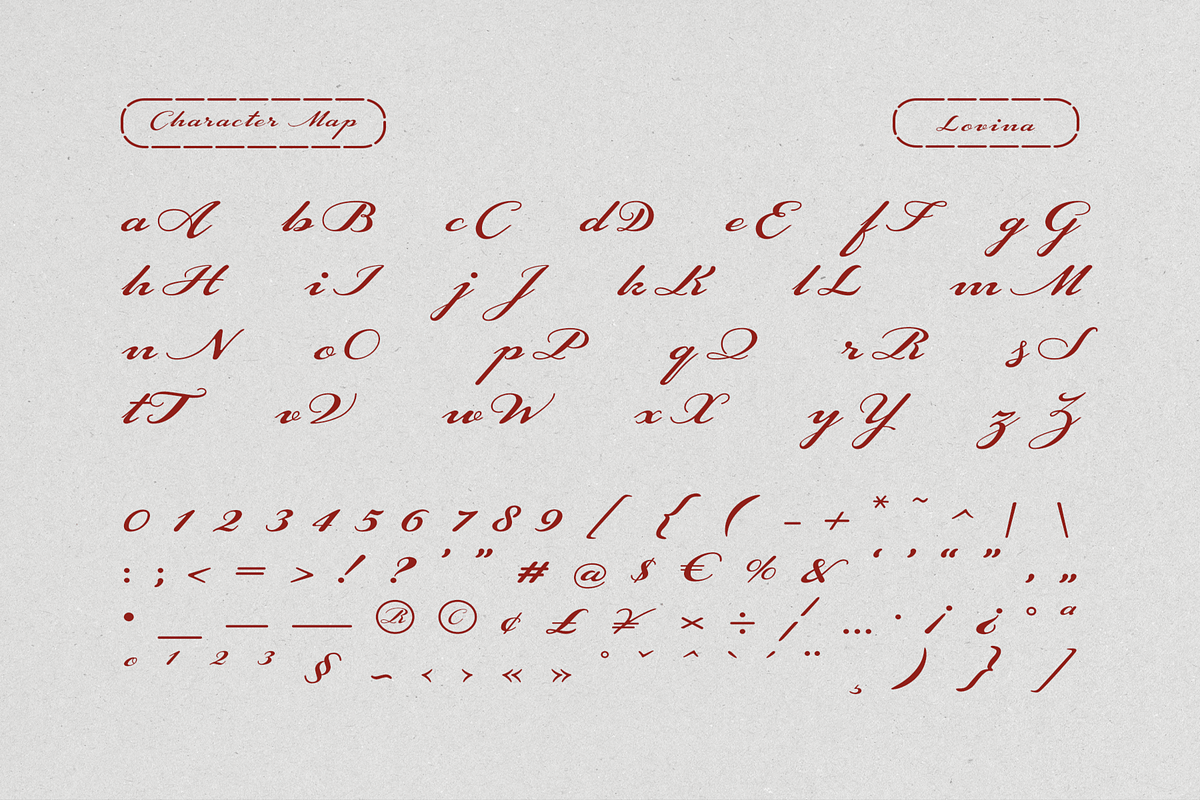 Character Map Lovina
aA bB cC dD eE fF gG
hH iI jJ kK lL mM
nN oO pP qQ rR sS
tT vV wW xX yY zZ
0 1 2 3 4 5 6 7 8 9 [ { ( - + * ~ ^ | \
: ; < = > ! ? ' " # @ $ € % & ‘ ’ “ ” , „
• _ – — ® © ¢ £ ¥ × ÷ / … · ¡ ¿ ° ª
º ¹ ² ³ § ~ ‹ › « » ˚ ˇ ^ ` ´ ¨ ¸ ) } ]